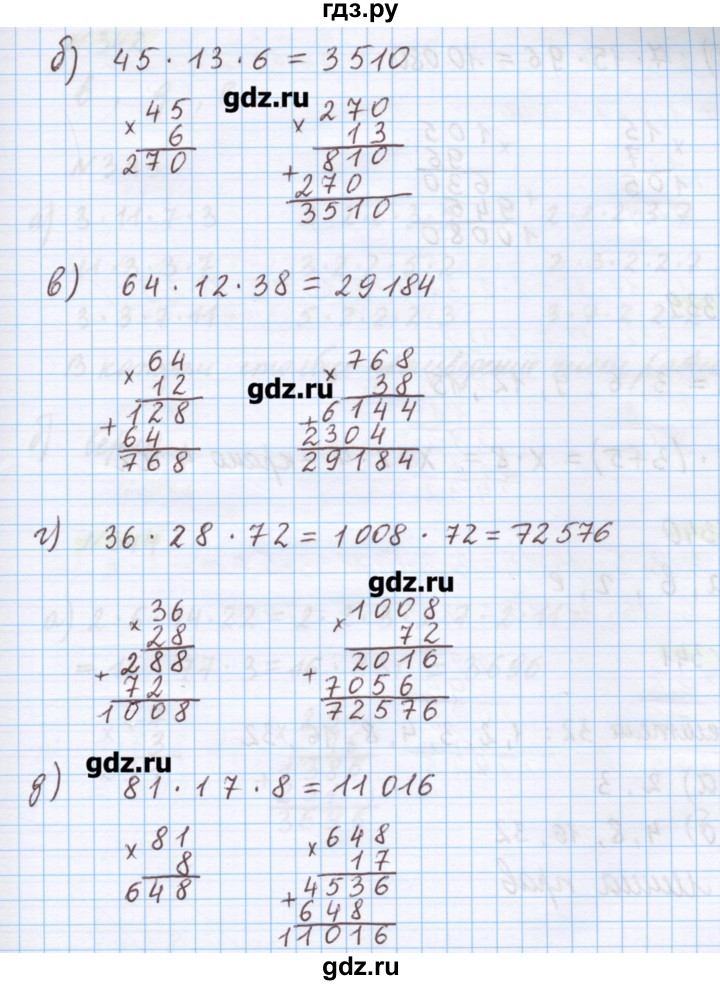 гдз.ру
б) 45 · 13 · 6 = 3510
gdz.ru
45
× 6
270
270
× 13
810
+ 270
3510
в) 64 · 12 · 38 = 29184
64
× 12
128
+ 64
768
gdz.ru
768
× 38
6144
+ 2304
29184
г) 36 · 28 · 72 = 1008 · 72 = 72576
gdz.ru
36
× 28
288
+ 72
1008
1008
× 72
2016
+ 7056
72576
gdz.ru
д) 81 · 17 · 8 = 11016
81
× 8
648
648
× 17
4536
+ 648
11016
gdz.ru